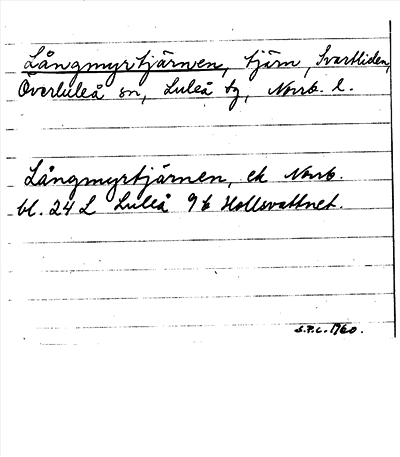 Långmyrtjärnen, tjärn, Svartliden,
Överluleå sn, Luleå tg, Norrb. l.
Långmyrtjärnen, ek Norrb.
bl. 24 L Luleå 9 b Hollsvattnet.
S.P.C. 1960.